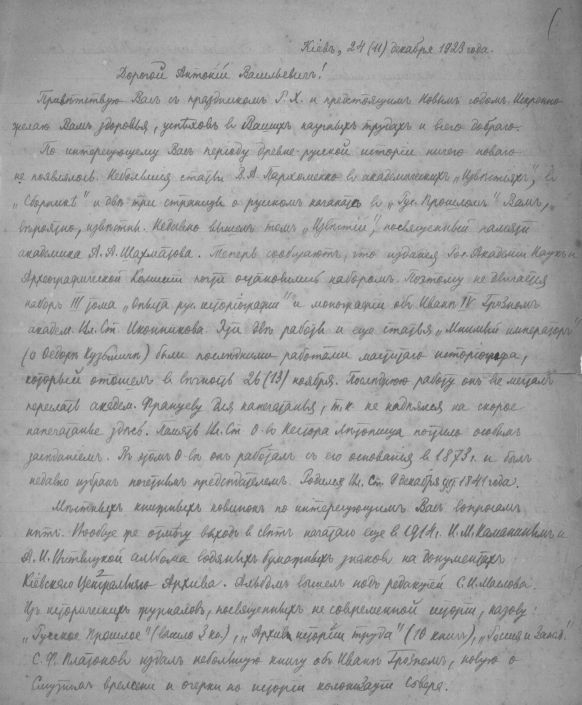 Кіевъ, 24 (11) декабря 1923 года.
Дорогой Антоній Васильевичъ!
Привѣтствую Васъ съ праздникомъ Р. Х. и предстоящимъ Новымъ годомъ. Искренно
желаю Вамъ здоровья, успѣховъ въ Вашихъ научныхъ трудахъ и всего добраго.
По интересующему Васъ періоду древне-русской исторіи ничего новаго
не появлялось. Небольшія статьи В. А. Пархоменко въ академическихъ „Извѣстіяхъ", въ
„Сборникѣ" и двѣ три страницы о русскомъ каганатѣ въ „Рус. Прошломъ" Вамъ,
вѣроятно, извѣстны. Недавно вышелъ томъ „Извѣстій", посвященный памяти
академика А. А. Шахматова. Теперь сообщаютъ, что изданія Рос. Академіи Наукъ и
Археографической Комисіи почти остановились наборомъ. Поэтому не двигается
наборъ III тома „Опыта рус. исторіографіи" и монографіи объ Иванѣ IV Грозномъ
академ. Ик. Ст. Иконникова. Эти двѣ работы и еще статья „Мнимый императоръ"
(о Федорѣ Кузьмичѣ) были послѣдними работами маститаго исторіографа,
который отошелъ въ вѣчность 26 (13) ноября. Послѣднюю работу онъ все мечталъ
переслать академ. Францеву для напечатанья, т. к. не надѣялся на скорое
напечатанье здѣсь. Память Ик. Ст. О-во Нестора Лѣтописца почтило особымъ
засѣданіемъ. Въ этомъ О-вѣ онъ работалъ съ его основанія въ 1873 г. и былъ
недавно избранъ почетнымъ предсѣдателемъ. Родился Ик. Ст. 9 декабря 1841 года.
Мѣстныхъ книжныхъ новинокъ по интересующимъ Васъ вопросамъ
нѣтъ. Вообще же отмѣчу выходъ въ свѣтъ начатаго еще въ 1914 г. И. М. Каманинымъ и
А. И. Витвицкой альбома водяныхъ бумажныхъ знаковъ на документахъ
Кіевскаго Центральнаго Архива. Альбомъ вышелъ подъ редакціей С. И. Маслова.
Изъ историческихъ журналовъ, посвященныхъ не современной исторіи, назову:
„Русское Прошлое" (вышло 3 кн.), „Архивъ исторіи труда" (10 книгъ), „Россія и Западъ".
С. Ф. Платоновъ издалъ небольшую книгу объ Иванѣ Грозномъ, новую о
Смутномъ времени и очерки по исторіи колонизаціи Сѣвера.